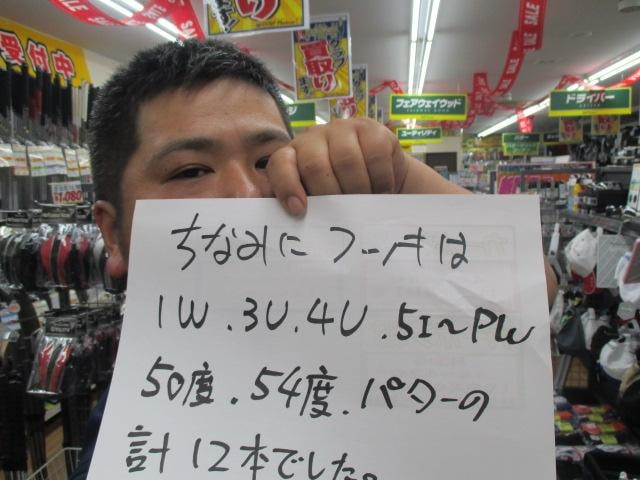 受付中
買取り
SALE
フェアウェイウッド
ユーティリティ
ドライバー
¥1,080
ちなみにフーチは
1W.3U.4U.5I~PW
50度.54度.パターの
計12本でした。